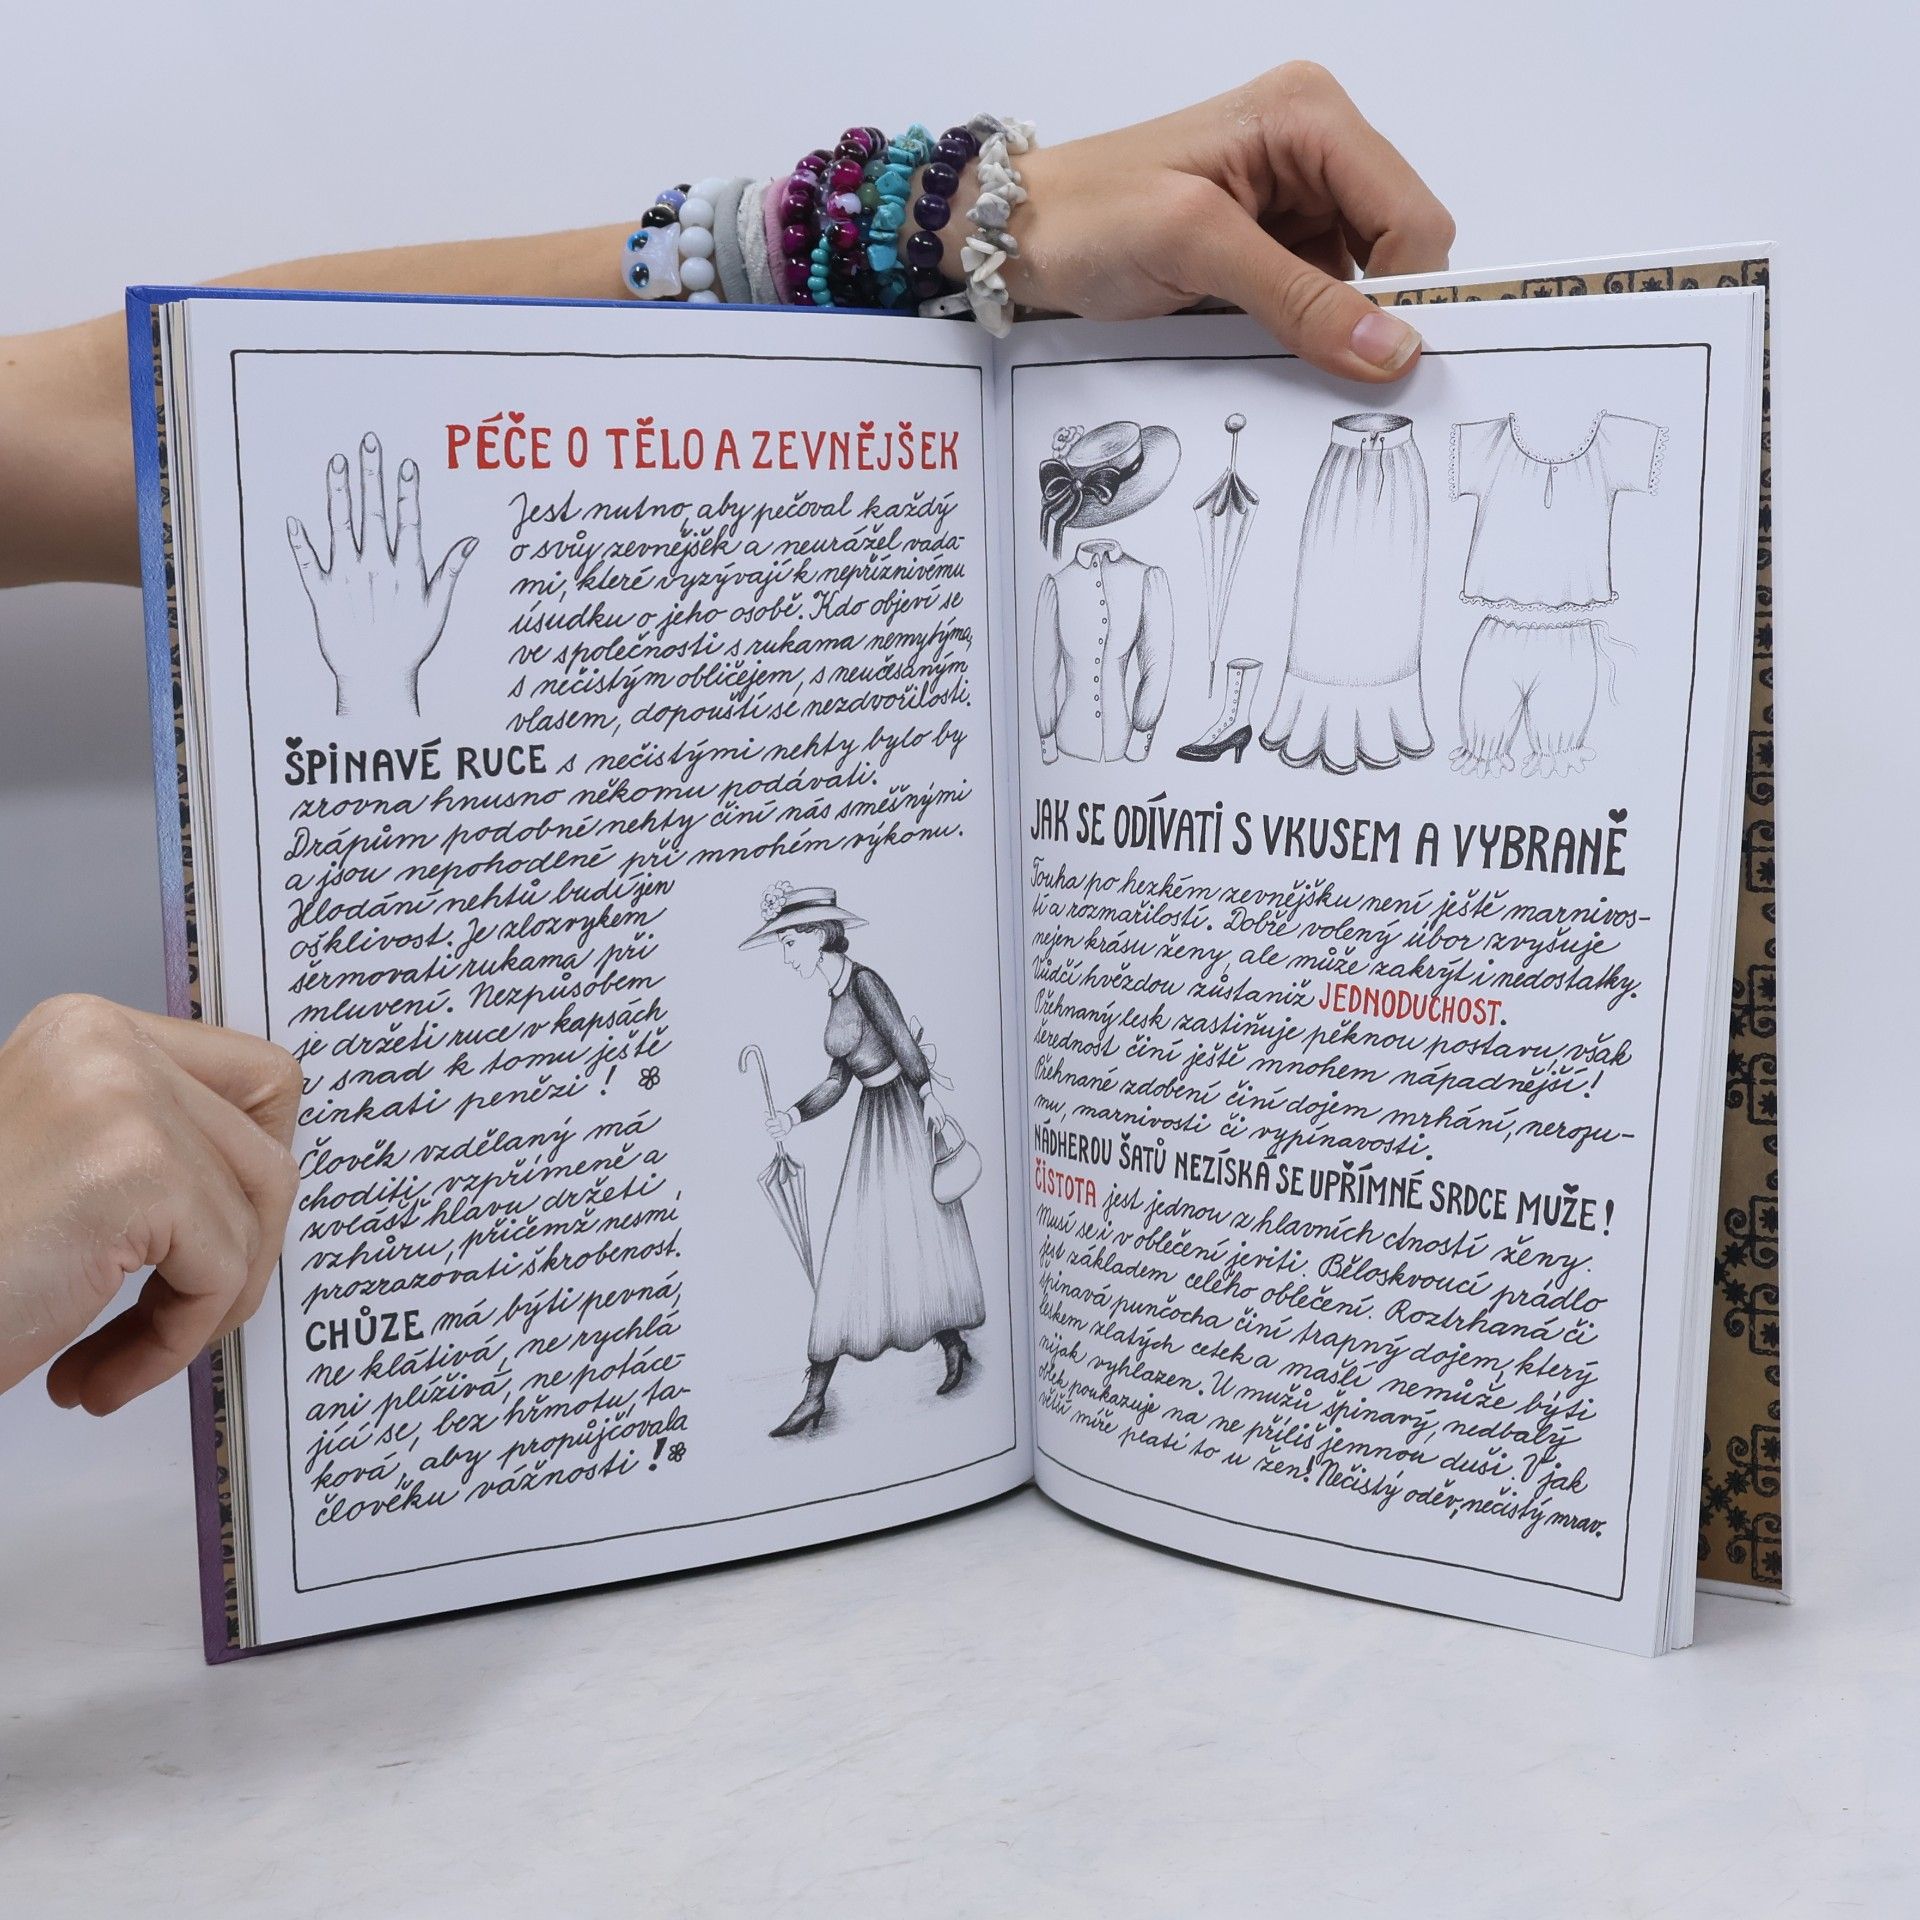 PÉČE O TĚLO A ZEVNĚJŠEK
Jest nutno, aby pečoval každý
o svůj zevnějšek a neurážel vada-
mi, které vyzývají k nepříznivému
úsudku o jeho osobě. Kdo objeví se
ve společnosti s rukama nemytýma,
s nečistým obličejem, s neučesaným
vlasem, dopouští se nezdvořilosti.
ŠPINAVÉ RUCE s nečistými nehty bylo by
zrovna hnusno někomu podávati.
Drápům podobné nehty činí nás směšnými
a jsou nepohodlné při mnohém výkonu.
Hlodání nehtů budí jen
ošklivost. Je zlozvykem
šermovati rukama při
mluvení. Nezpůsobem
je držeti ruce v kapsách
a snad k tomu ještě
cinkati penězi!
Člověk vzdělaný má
choditi vzpřímeně a
zvlášť hlavu držeti
vzhůru, přičemž nesmí
prozrazovati škrobenost.
CHŮZE má býti pevná,
ne klátivá, ne rychlá
ani plíživá, ne potáce-
jící se, bez hřmotu, ta-
ková, aby propůjčovala
člověku vážnosti!
JAK SE ODÍVATI S VKUSEM A VYBRANĚ
Touha po hezkém zevnějšku není ještě marnivos-
tí a rozmařilostí. Dobře volený úbor zvyšuje
nejen krásu ženy, ale může zakrýt i nedostatky.
Vůdčí hvězdou zůstaniž JEDNODUCHOST.
Přehnaný lesk zastiňuje pěknou postavu, však
šerednost činí ještě mnohem nápadnější!
Přehnané zdobení činí dojem mrhání, nerozu-
mu, marnivosti či vypínavosti.
NÁDHEROU ŠATŮ NEZÍSKÁ SE UPŘÍMNÉ SRDCE MUŽE!
ČISTOTA jest jednou z hlavních ctností ženy.
Musí se i v oblečení jeviti. Běloskvoucí prádlo
jest základem celého oblečení. Roztrhaná či
špinavá punčocha činí trapný dojem, který
leskem zlatých cetek a mašlí nemůže býti
nijak vyhlazen. U mužů špinavý, nedbalý
oblek poukazuje na ne příliš jemnou duši. V jak
větší míře platí to u žen! Nečistý oděv, nečistý mrav.